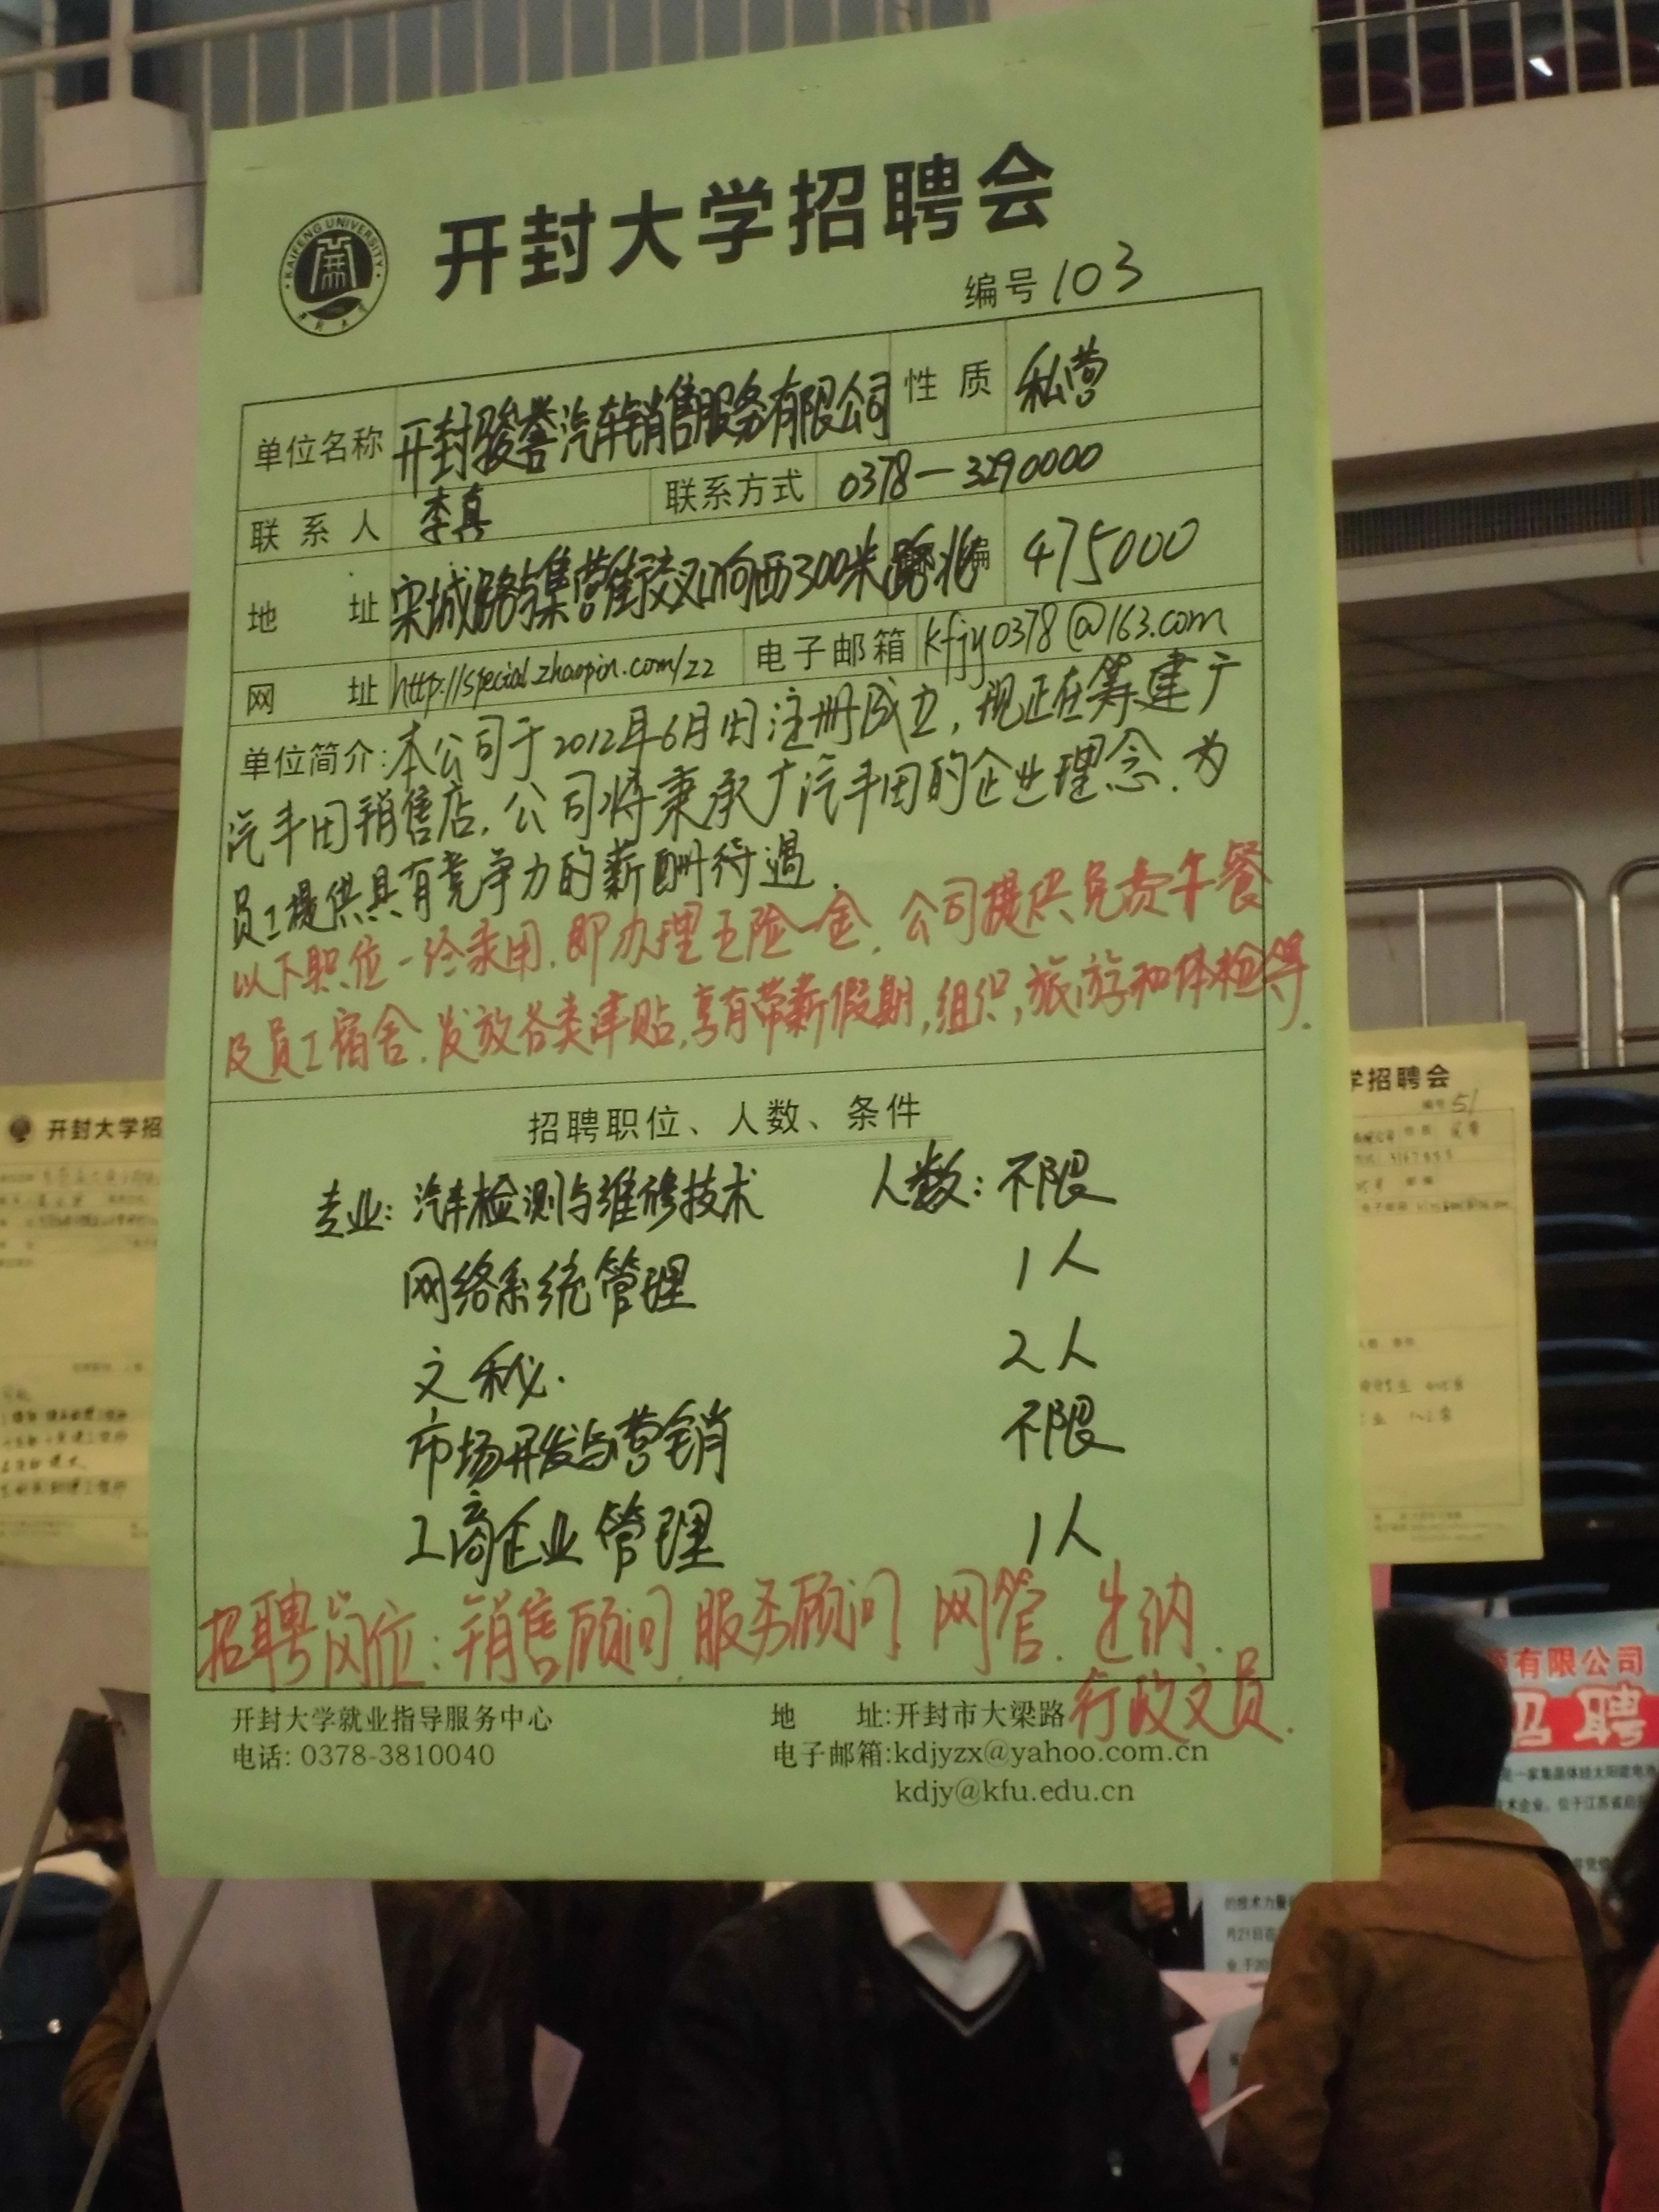 开封大学招聘会
KAIFENG UNIVERSITY
编号 103
单位名称 开封骏誉汽车销售服务有限公司 性质 私营
联系人 李真 联系方式 0378-3290000
地址 宋城路与集英街交叉口向西300米路北 编 475000
网址 http://special.zhaopin.com/zz 电子邮箱 kfjy0378@163.com
单位简介:本公司于2012年6月由注册成立,现正在筹建广
汽丰田销售店,公司将秉承广汽丰田的企业理念,为
员工提供具有竞争力的薪酬待遇.
以下职位一经录用,即办理五险一金,公司提供免费午餐
及员工宿舍,发放各类津贴,享有带薪假期,组织,旅游和体检等.
招聘职位、人数、条件
专业: 汽车检测与维修技术 人数: 不限
网络系统管理 1人
文秘. 2人
市场开发与营销 不限
工商企业管理 1人
招聘岗位: 销售顾问, 服务顾问, 网管, 出纳,
行政文员.
开封大学就业指导服务中心 地址:开封市大梁路
电话: 0378-3810040 电子邮箱:kdjyzx@yahoo.com.cn
kdjy@kfu.edu.cn
开封大学招
学招聘会
编号 51
有限公司
招聘